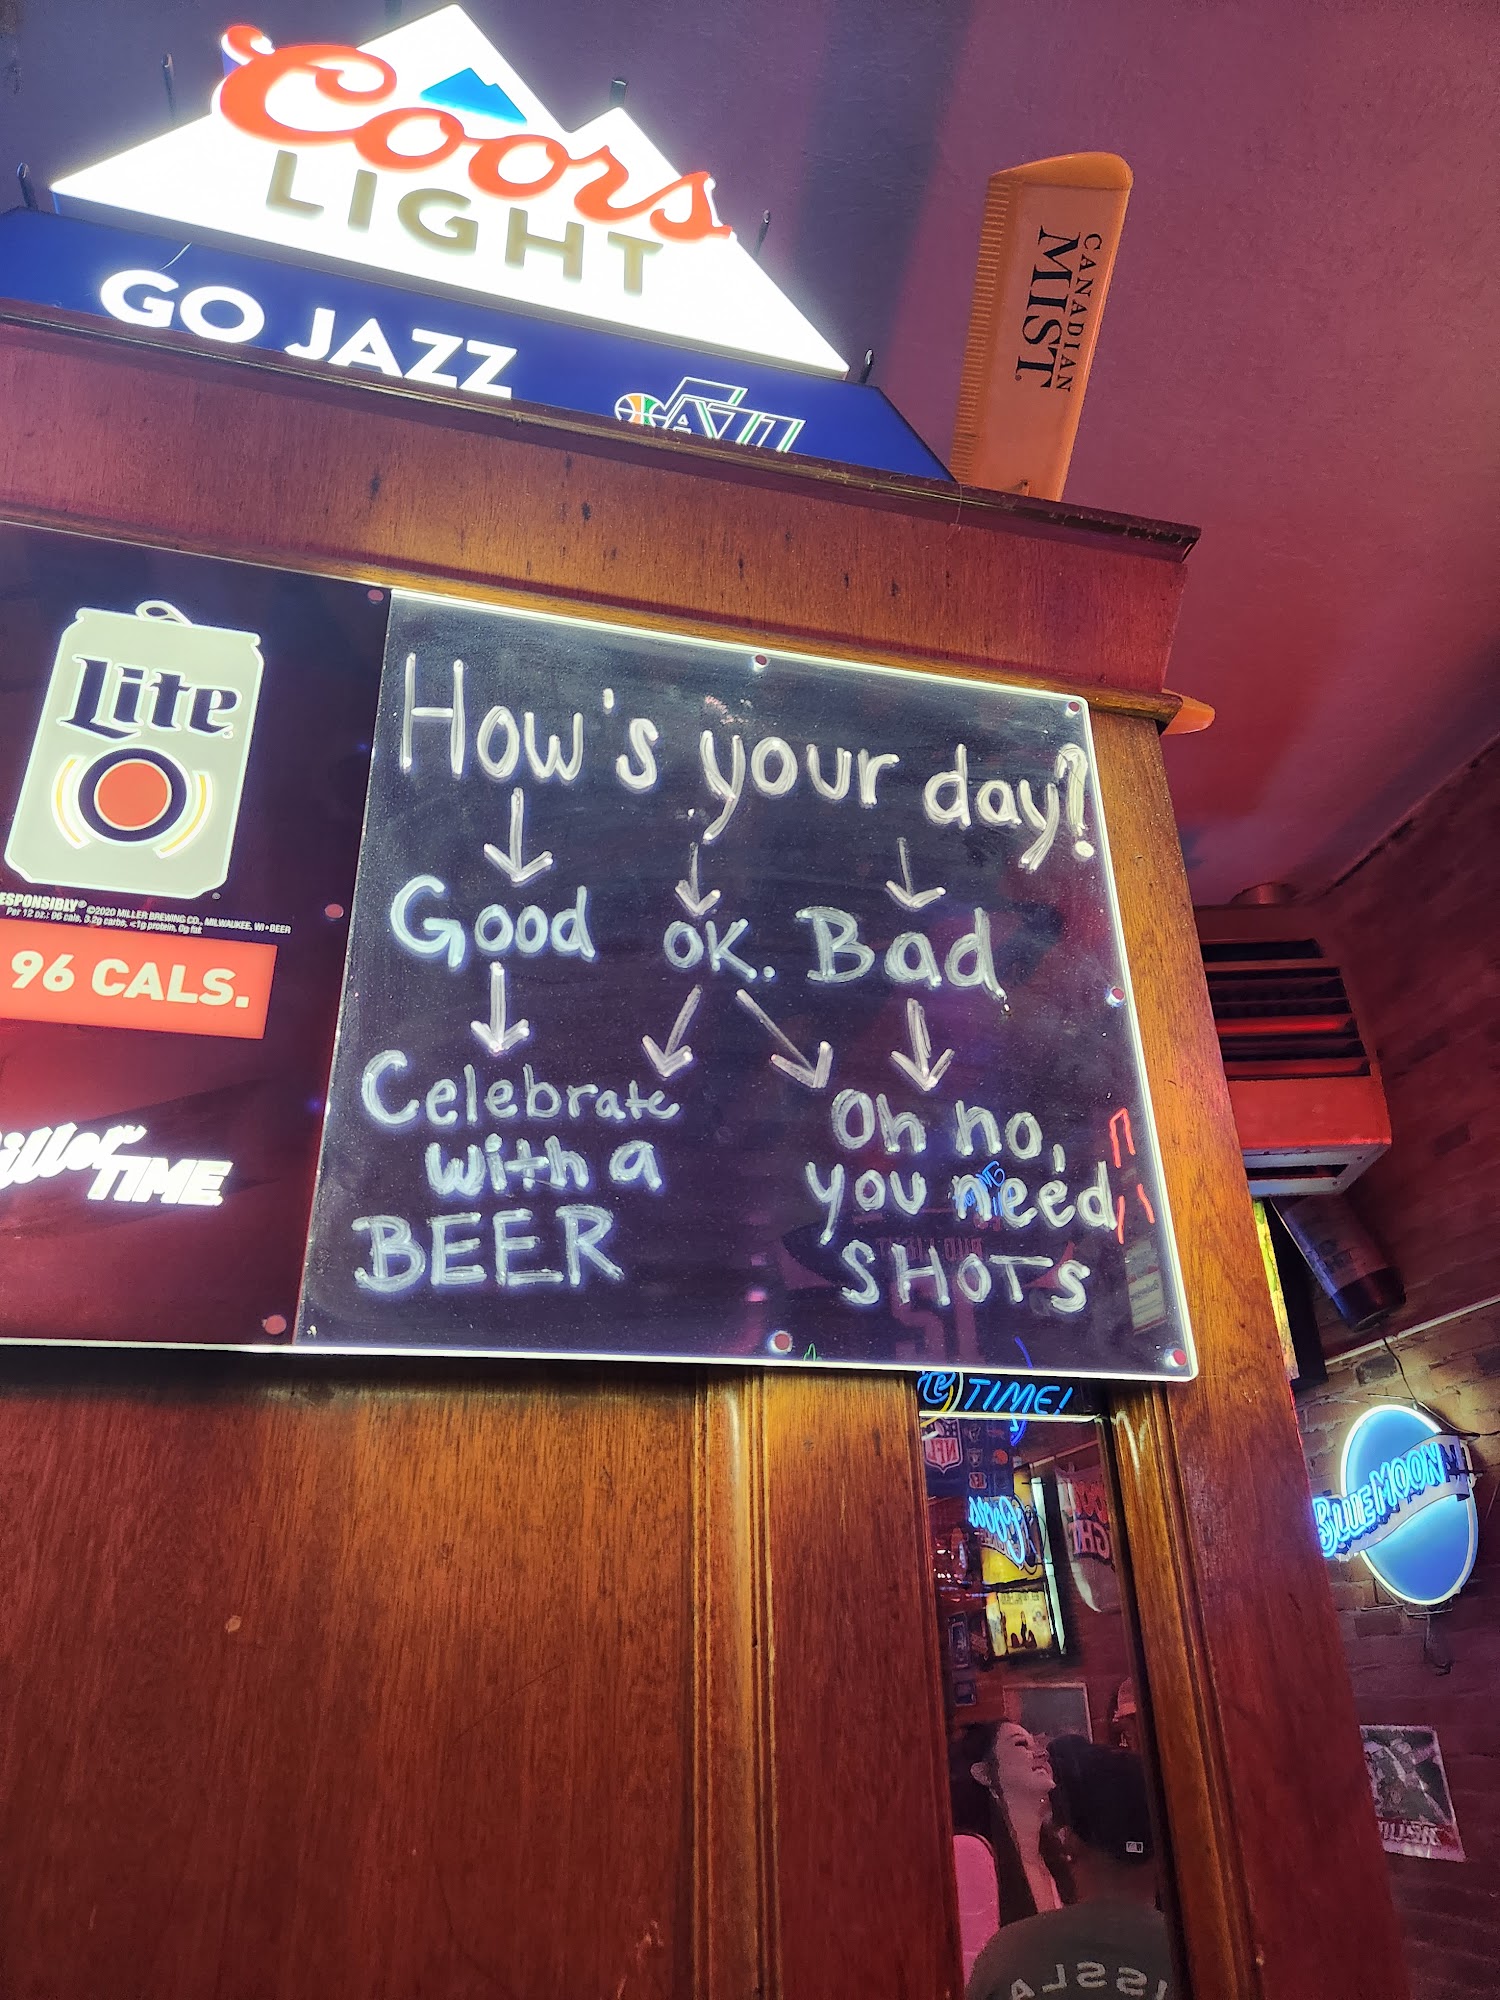 Coors
LIGHT
GO JAZZ
JAZZ
CANADIAN
MIST
Lite
ESPONSIBLY® ©2020 MILLER BREWING CO., MILWAUKEE, WI • BEER
Per 12 oz.: 96 cals, 3.2g carbs, <1g protein, 0g fat
96 CALS.
iller
TIME
How's your day?
Good OK. Bad
Celebrate
with a
BEER
Oh no,
you need
SHOTS
TIME!
NFL
Coors
BLUE MOON